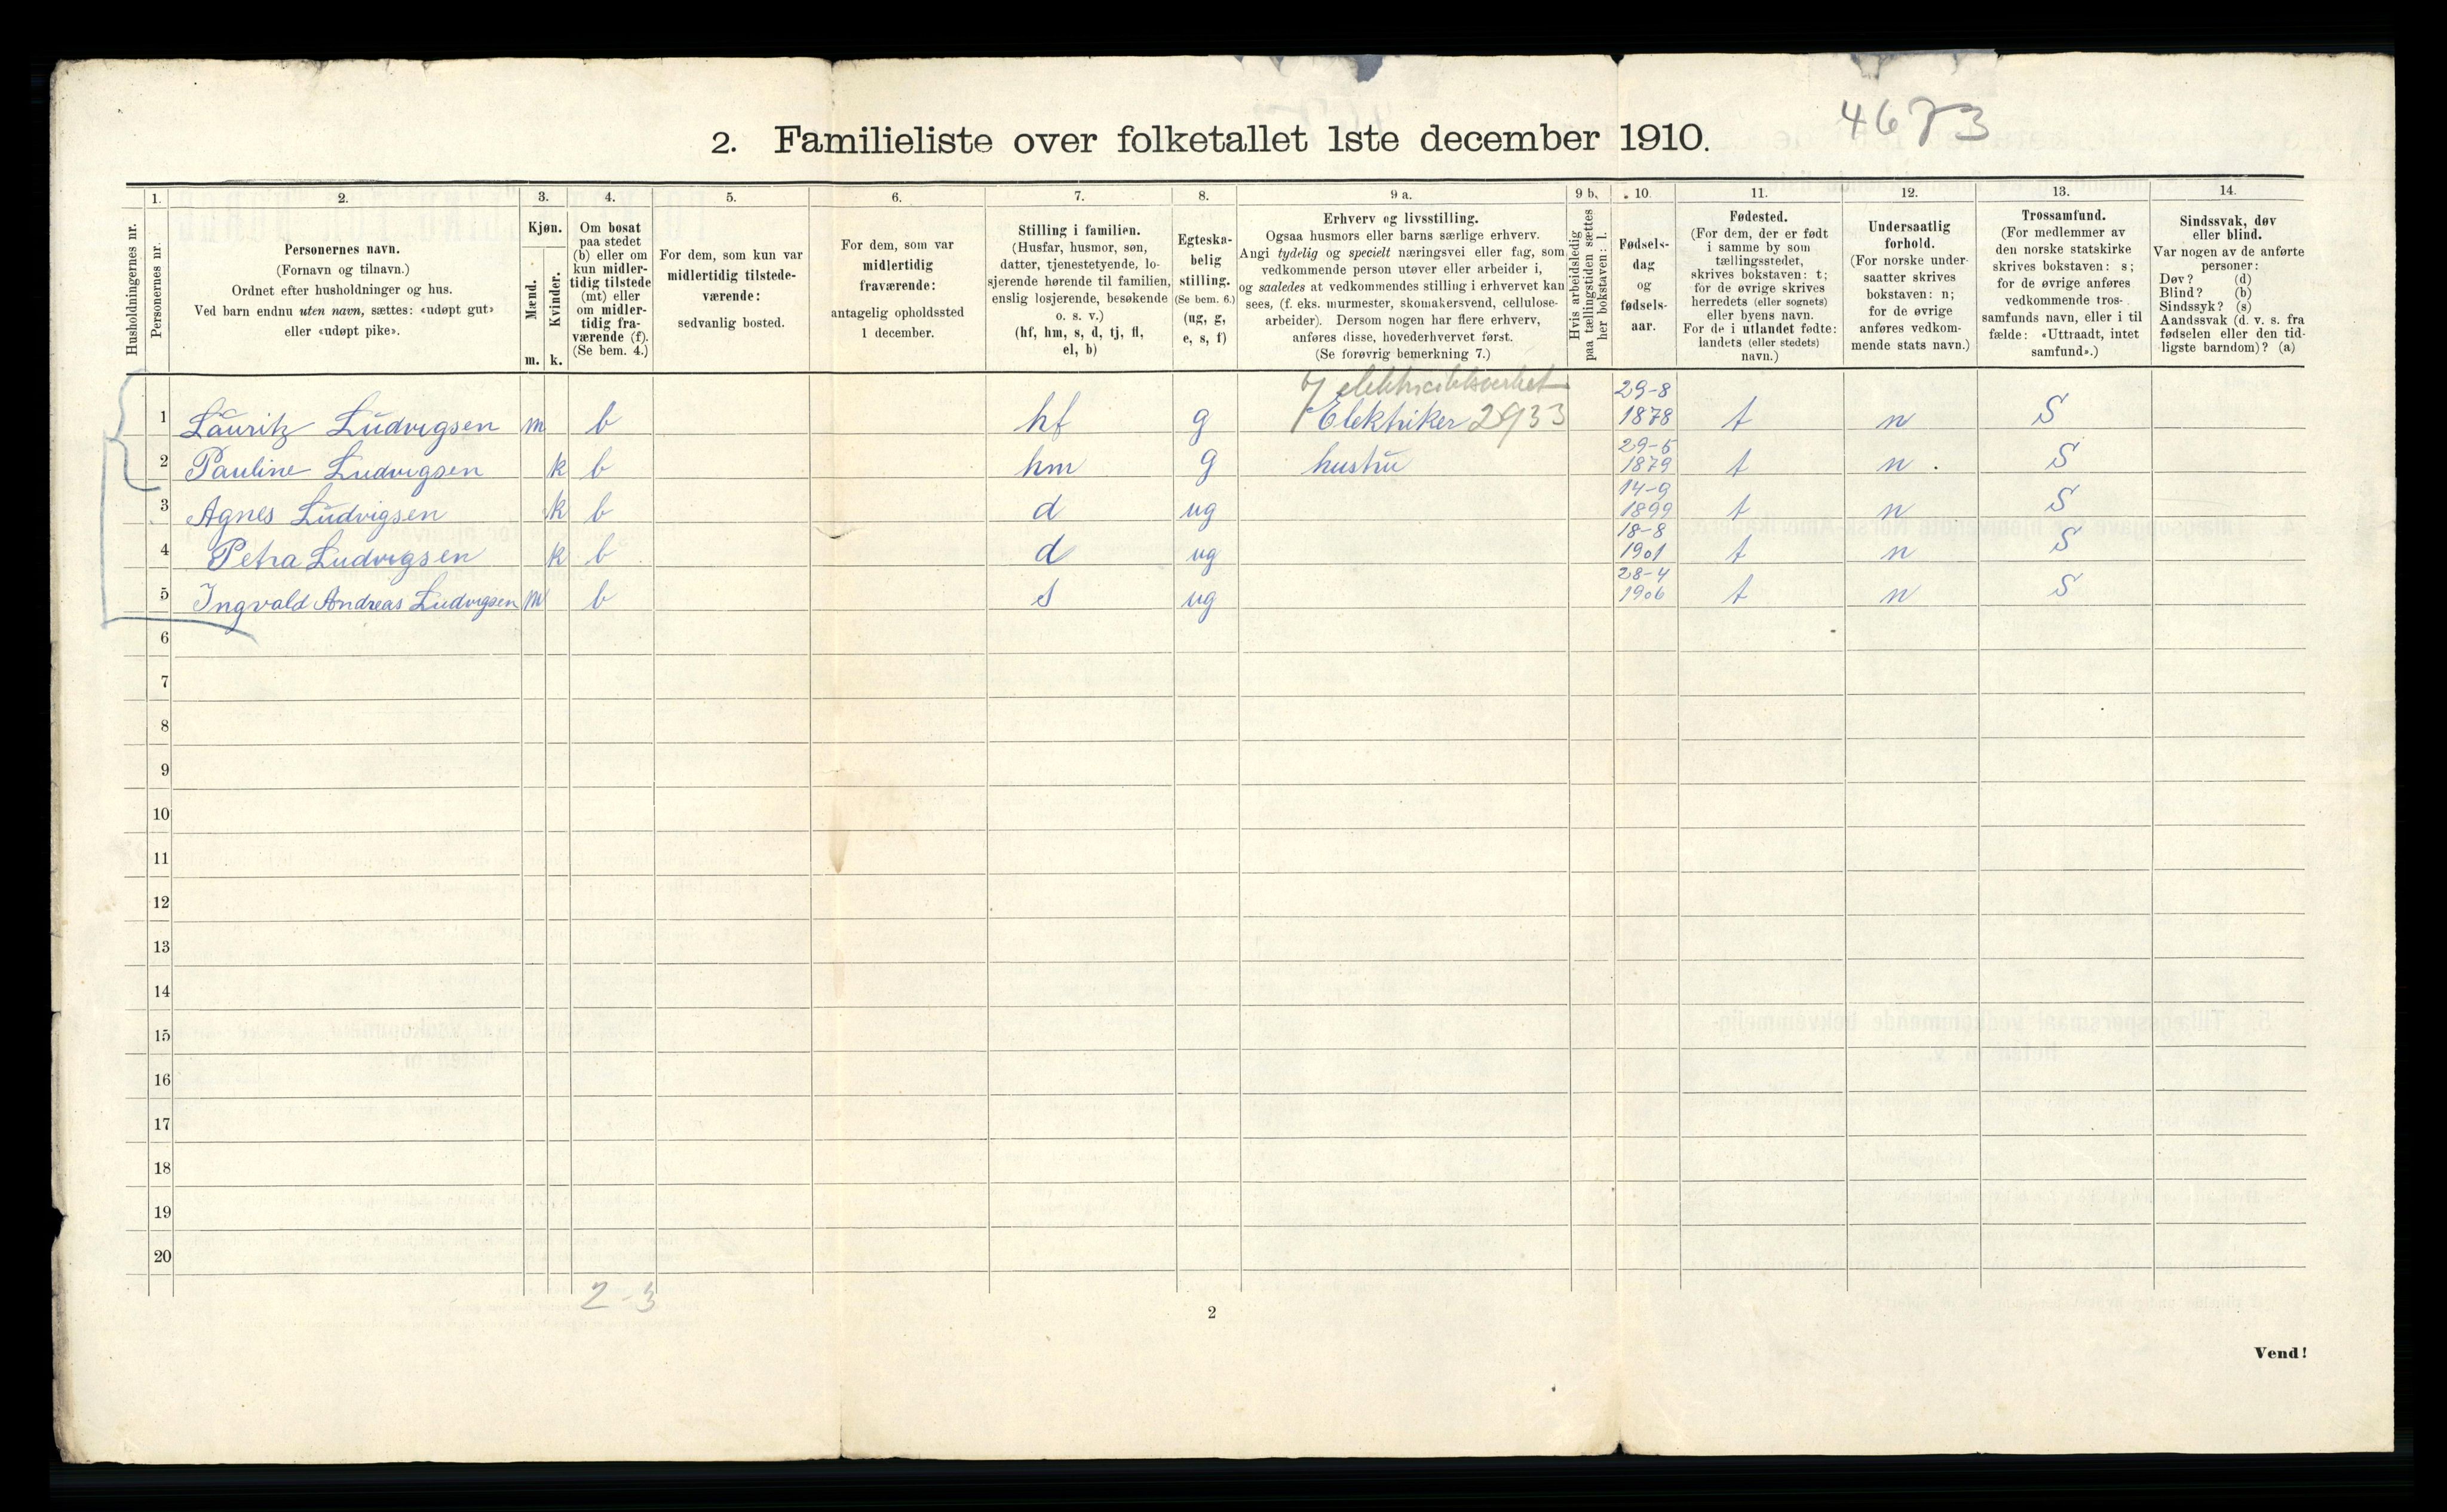 4673
2. Familieliste over folketallet 1ste december 1910.
Husholdningernes nr.
1.
Personernes nr.
2.
Personernes navn.
(Fornavn og tilnavn.)
Ordnet efter husholdninger og hus.
Ved barn endnu uten navn, sættes: «udøpt gut»
eller «udøpt pike».
3.
Kjøn.
Mænd.
m.
Kvinder.
k.
4.
Om bosat
paa stedet
(b) eller om
kun midler-
tidig tilstede
(mt) eller
om midler-
tidig fra-
værende (f).
(Se bem. 4.)
5.
For dem, som kun var
midlertidig tilstede-
værende:
sedvanlig bosted.
6.
For dem, som var
midlertidig
fraværende:
antagelig opholdssted
1 december.
7.
Stilling i familien.
(Husfar, husmor, søn,
datter, tjenestetyende, lo-
sjerende hørende til familien,
enslig losjerende, besøkende
o. s. v.)
(hf, hm, s, d, tj, fl,
el, b)
8.
Egteska-
belig
stilling.
(Se bem. 6.)
(ug, g,
e, s, f)
9 a.
Erhverv og livsstilling.
Ogsaa husmors eller barns særlige erhverv.
Angi tydelig og specielt næringsvei eller fag, som
vedkommende person utøver eller arbeider i,
og saaledes at vedkommendes stilling i erhvervet kan
sees, (f. eks. murmester, skomakersvend, cellulose-
arbeider). Dersom nogen har flere erhverv,
anføres disse, hovederhvervet først.
(Se forøvrig bemerkning 7.)
9 b.
Hvis arbeidsledig
paa tællingstiden sættes
her bokstaven: l.
10.
Fødsels-
dag
og
fødsels-
aar.
11.
Fødested.
(For dem, der er født
i samme by som
tællingsstedet,
skrives bokstaven: t;
for de øvrige skrives
herredets (eller sognets)
eller byens navn.
For de i utlandet fødte:
landets (eller stedets)
navn.)
12.
Undersaatlig
forhold.
(For norske under-
saatter skrives
bokstaven: n;
for de øvrige
anføres vedkom-
mende stats navn.)
13.
Trossamfund.
(For medlemmer av
den norske statskirke
skrives bokstaven: s;
for de øvrige anføres
vedkommende tros-
samfunds navn, eller i til
fælde: «Uttraadt, intet
samfund».)
14.
Sindssvak, døv
eller blind.
Var nogen av de anførte
personer:
Døv? (d)
Blind? (b)
Sindssyk? (s)
Aandssvak (d. v. s. fra
fødselen eller den tid-
ligste barndom)? (a)
elektricitetsverket
1 Lauritz Ludvigsen m b hf g Elektriker 2933 29-8 1878 t n S
2 Pauline Ludvigsen k b hm g hustru 29-5 1879 t n. S
3 Agnes Ludvigsen k b d ug 14-9 1899 t n S
4 Petra Ludvigsen k b d ug 18-8 1901 t n S
5 Ingvald Andreas Ludvigsen m b s ug 28-4 1906 t n S
6
7
8
9
10
11
12
13
14
15
16
17
18
19
20
2-3
2
Vend!